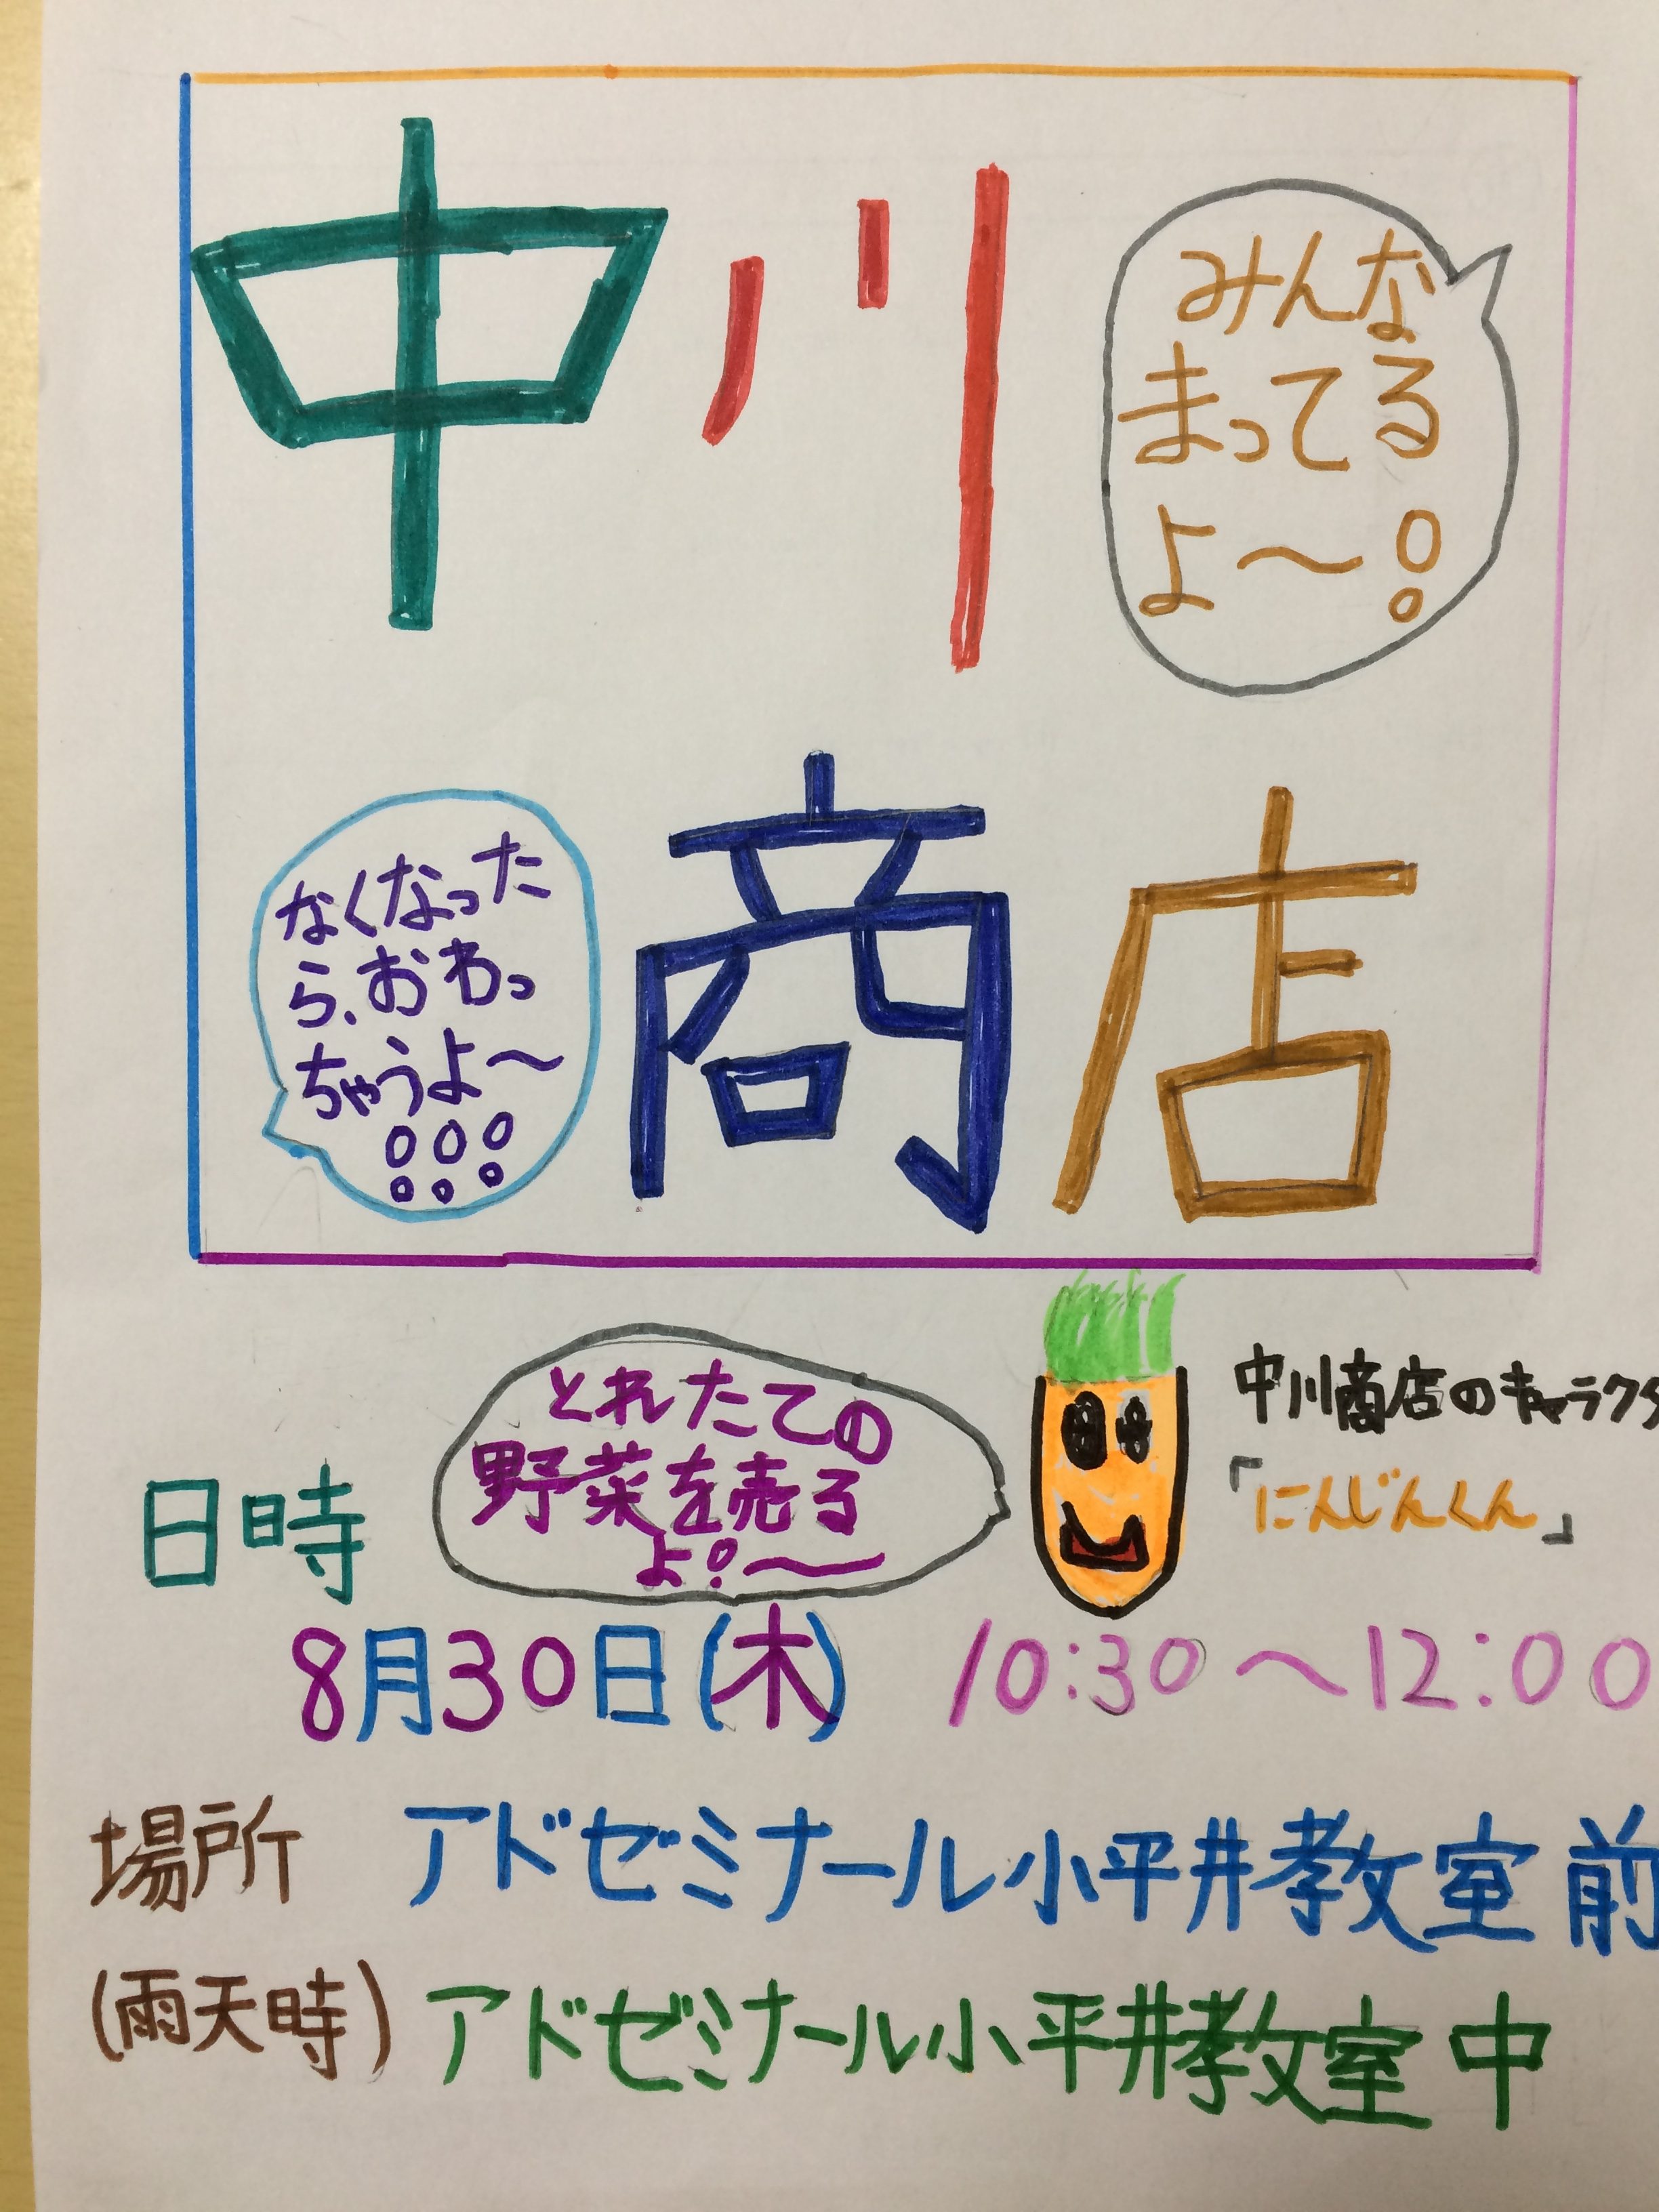 中川
みんな
まってる
よ〜!
なくなった
ら、おわっ
ちゃうよ〜
!!!
商店
とれたての
野菜を売る
よ!〜
中川商店のキャラクタ
「にんじんくん」
日時
8月30日(木) 10:30〜12:00
場所 アドゼミナール小平井教室前
(雨天時) アドゼミナール小平井教室中